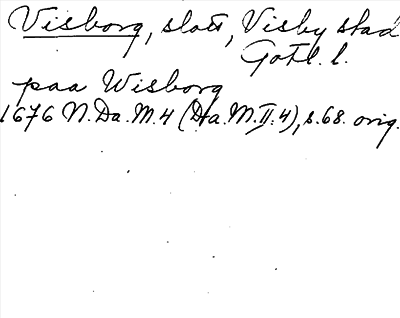 Visborg, slott, Visby stad
Gotl. l.
paa Wisborg
1676 N. Da. M. 4 (Da. M. II. 4), s. 68. orig.